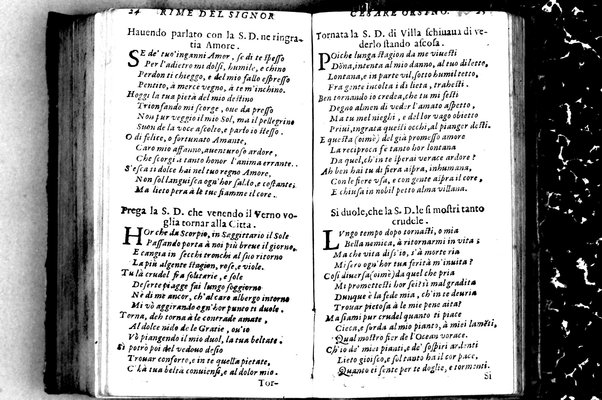 24 RIME DEL SIGNOR
Hauendo parlato con la S. D. ne ringra-
tia Amore.
SE de' tuo' inganni Amor, se di te spesso
Per l'adietro mi dolsi, humile, e chino
Perdon ti chieggo, e del mio fallo espresso
Pentito, à merce vegno, à te m'inchino.
Hoggi la tua pietà del mio destino
Trionfando mi scorge, oue da presso
Non pur veggio il mio Sol, ma il pellegrino
Suon de la voce ascolto, e parlo io stesso.
O di felice, o fortunato Amante,
Caro mio affanno, auenturoso ardore,
Che scorge a tanto honor l'anima errante.
S'esca ti dolce hai nel tuo regno Amore,
Non sol languisca ogn'hor saldo, e costante;
Ma lieto pera à le tue fiamme il core.
Prega la S. D. che venendo il Verno vo-
glia tornar alla Citta.
HOr che da Scorpio, in Saggittario il Sole
Passando porta à noi più breue il giorno,
E cangia in secchi tronchi al suo ritorno
La più algente stagion, rose, e viole.
Tu là crudel fra solitarie, e sole
Deserte piagge fai lungo soggiorno
Nè di me ancor, ch'al caro albergo intorno
Mi vò aggirando ogn'hor punto ti duole.
Torna, deh torna à le contrade amate
Al dolce nido de le Gratie, ou'io
Vò piangendo il mio duol, la tua beltate.
Si potrò poi del vedouo desio
Trouar conforto, e in te quella pietate,
C'hà tua beltà conuiensi, e al dolor mio.
Tor-
CESARE ORSINO.
Tornata la S. D. di Villa schiuaua di ve-
derlo stando ascosa.
POiche lunga stagion da me viuesti
Dōna, intenta al mio danno, al tuo diletto,
Lontana, e in parte vil, sotto humil tetto,
Fra gente incolta i di lieta, trahesti.
Ben tornando io credea, che tu mi festi
Degno almen di veder l'amato aspetto,
Ma tu mel nieghi, e del lor vago obietto
Priui, ingrata questi occhi, al pianger desti.
E questa (oimè) del già promesso amore
La reciproca fe tanto hor lontana
Da quel, ch'in te sperai verace ardore?
Ah ben hai tu di fiera aspra, inhumana,
Con le fiere vsa, e con gente aspra il core,
E chiusa in nobil petto alma villana.
Si duole, che la S. D. le si mostri tanto
crudele.
LVngo tempo dopo tornasti, o mia
Bella nemica, à ritornarmi in vita;
Ma che vita diss'io, s'à morte ria
Misero ogn'hor tua forità m'inuita?
Cosi diuersa (oimè) da quel che pria
Mi promettesti hor sei? si mal gradita
Dunque è la fede mia, ch'in te deuria
Trouar pietosa à le mie pene aita?
Ma siami pur crudel quanto ti piace
Cieca, e sorda al mio pianto, à miei lamēti,
Qual mostro fier de l'Ocean vorace.
Ch'io de' miei pianti, e de' sospiri ardenti
Lieto gioisco, e sol tanto ha il cor pace,
Quanto ei sente per te doglie, e tormenti.
Si